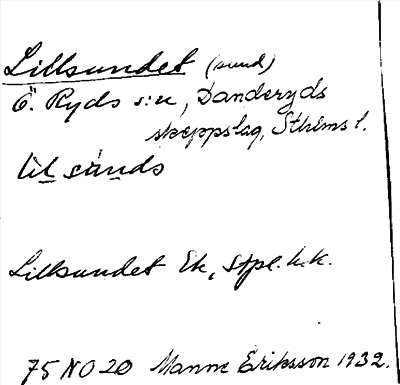 Lillsundet (sund)
Ö. Ryds s:n, Danderyds
skeppslag, Sthlms l.
lìl sùnds
Lillsundet Ek, Stpl. h.k.
75 NO 20 Manne Eriksson 1932.